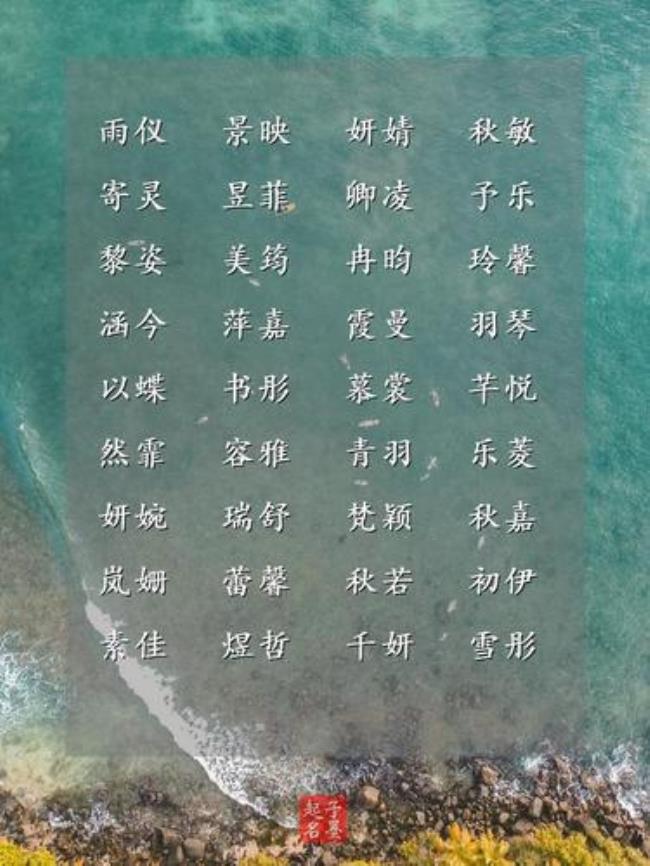 雨仪 景映 妍婧 秋敏
寄灵 昱菲 卿凌 予乐
黎姿 美筠 冉昀 玲馨
涵今 萍嘉 霞曼 羽琴
以蝶 书彤 慕裳 芊悦
然霏 容雅 青羽 乐菱
妍婉 瑞舒 梵颖 秋嘉
岚姗 蕾馨 秋若 初伊
素佳 煜哲 千妍 雪彤
子墨
起名